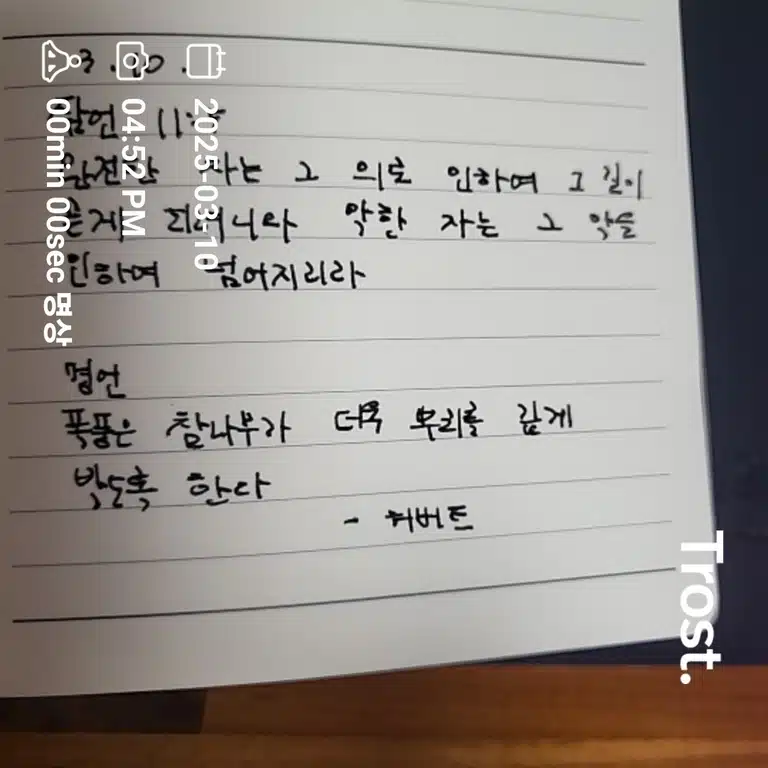 3.10.
잠언 11:5
완전한 자는 그 의로 인하여 그 길이
곧게 되려니와 악한 자는 그 악을
인하여 넘어지리라
명언
폭풍은 참나무가 더욱 뿌리를 깊게
박도록 한다
- 허버트
2025-03-10
04:52 PM
00min 00sec 명상
Trost.